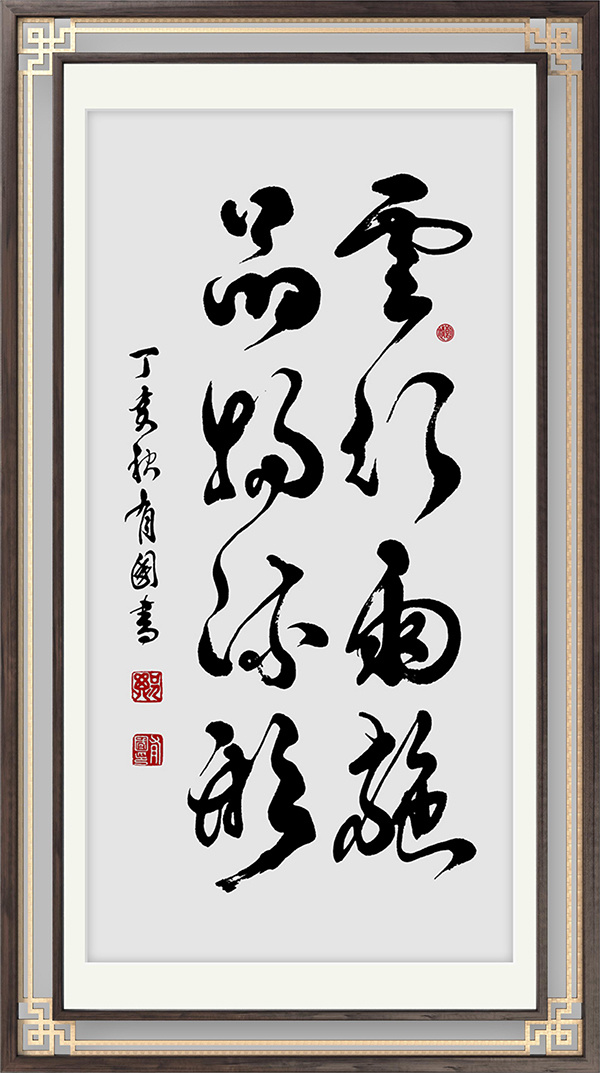 雲行雨施
品物流形
丁亥秋有國書